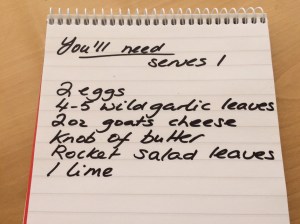 You'll need
serves 1
2 eggs
4-5 wild garlic leaves
2oz goats cheese
Knob of butter
Rocket salad leaves
1 lime